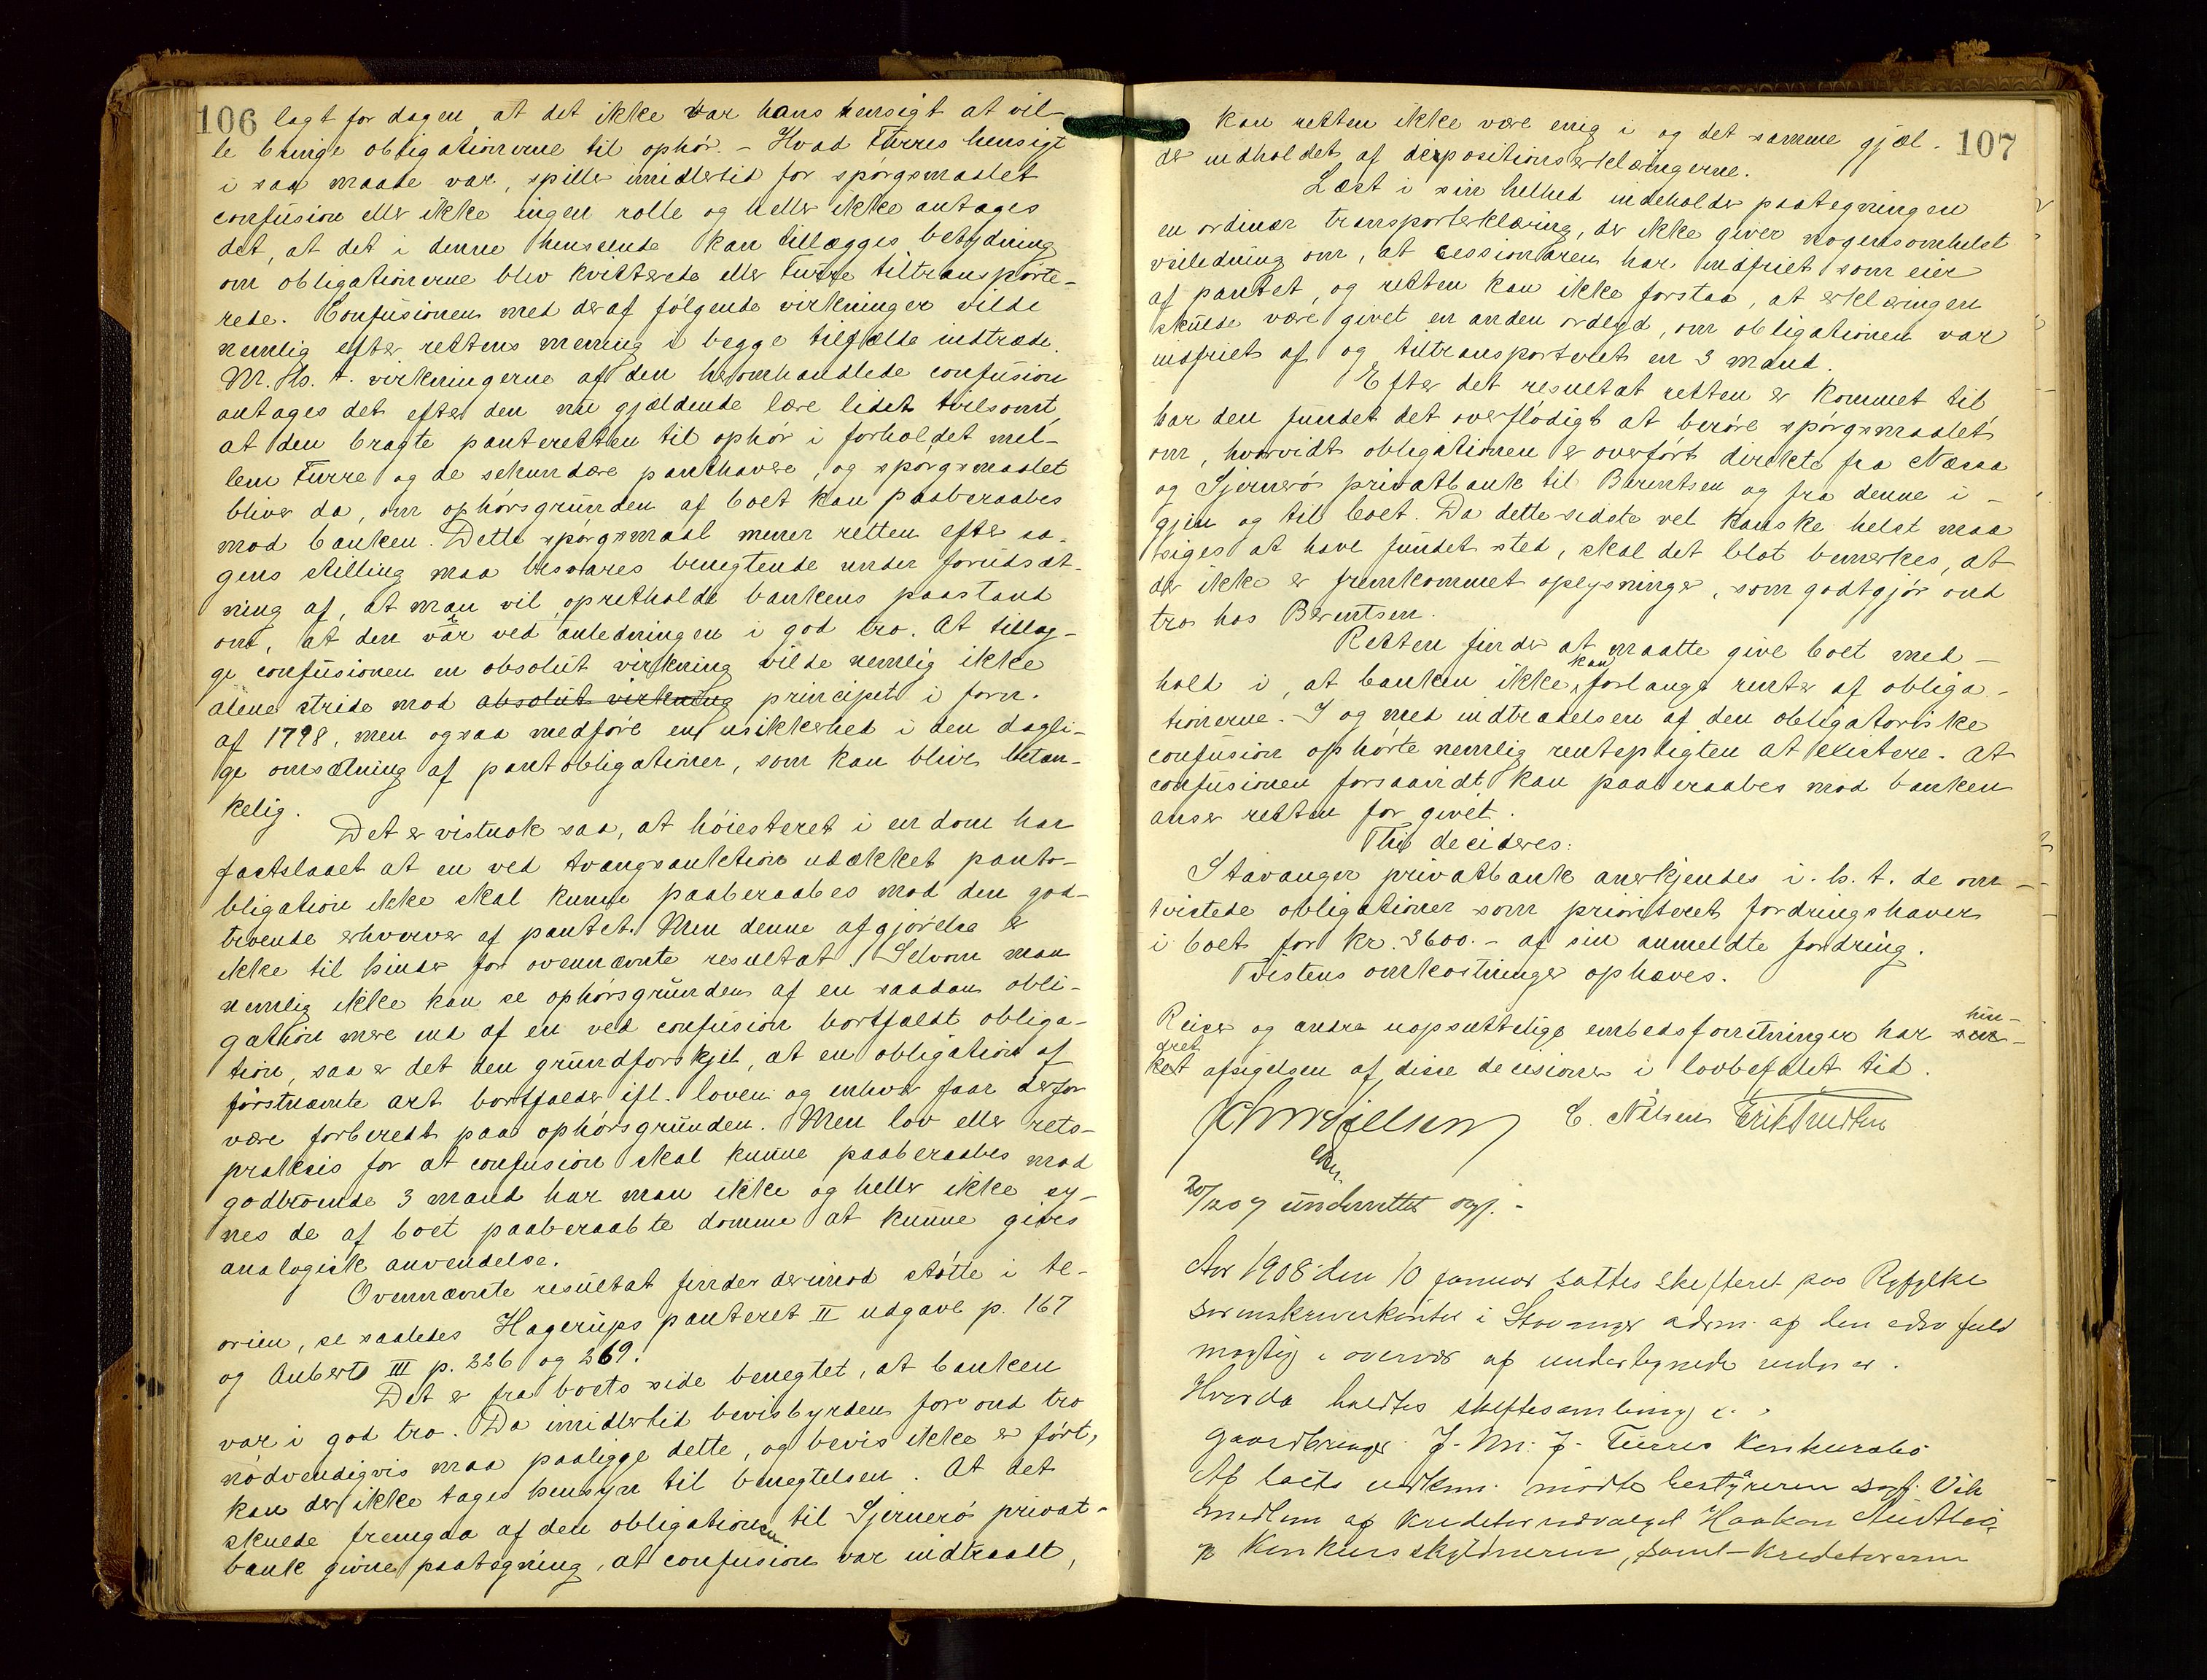 106 lagt for dagen, at det ikke var hans hensigt at vil-
le bringe obligationerne til ophør. - Hvad Furres hensigt
i saa maade var, spiller imidlertid for spørgsmaalet
confusion eller ikke ingen rolle og heller ikke antages
det, at det i denne henseende kan tillægges betydning
om obligationerne blev kvitterede eller Furre tiltransporte-
rede. Confusionen med deraf følgende virkninger vilde
nemlig efter rettens mening i begge tilfælde indtræde.
M. Hs. t. virkningerne af den heromhandlede confusion
antages det efter den nu gjældende lære lidet tvilsomt,
at den bragte panteretten til ophør i forholdet mel-
lem Furre og de sekundære panthavere, og spørgsmaalet
bliver da, om ophørsgrunden af boet kan paaberaabes
mod banken. Dette spørgsmaal mener retten efter sa-
gens stilling maa besvares benegtende under forudsæt-
ning af, at man vil opretholde bankens paastand
om, at den var ved anledningen i god tro. At tillæg-
ge confusionen en absolut virkning vilde nemlig ikke
alene stride mod absolut virkning principet i forn.
af 1798, men ogsaa medføre en usikkerhed i den dagli-
ge omsætning af pantobligationer, som kan blive betæn-
kelig.
Det er vistnok saa, at høiesteret i en dom har
fastslaaet at en ved tvangsauktion udækket panto-
bligation ikke skal kunne paaberaabes mod den god-
troende erhverver af pantet. Men denne afgjørelse er
ikke til hinder for ovennævnte resultat. Selvom man
nemlig ikke kan se ophørsgrunden af en saadan obli-
gation mere end af en ved confusion bortfaldt obliga-
tion, saa er det den grundforskjel, at en obligation af
førstnævnte art bortfalder ifl. loven og enhver faar derfor
være forberedt paa ophørsgrunden. Men lov eller rets-
praksis for at confusion skal kunne paaberaabes mod
godtroende 3 mand har man ikke og heller ikke sy-
nes de af boet paaberaabte domme at kunne gives
analogisk anvendelse.
Ovennævnte resultat finder derimod støtte i te-
orien, se saaledes Hagerups panteret II udgave p. 167
og Auberts III p. 226 og 269.
Det er fra boets side benegtet, at banken
var i god tro. Da imidlertid bevisbyrden for ond tro
nødvendigvis maa paaligge dette, og bevis ikke er ført,
kan der ikke tages hensyn til benegtelsen. At det
skulde fremgaa af den obligationen til Sjernerø privat-
bank givne paategning, at confusion var indtraadt,
kan retten ikke være enig i og det samme gjæl- 107
der indholdet af depositionserklæringerne.
Læst i sin helhed indeholder paategningen
en ordinær transporterklæring, der ikke giver nogensomhelst
veiledning om, at cessionaren har indfriet som eier
af pantet, og retten kan ikke forstaa, at erklæringen
skulde være givet en anden ordlyd, om obligationen var
indfriet af og tiltransporteret en 3 mand.
Efter det resultat retten er kommet til,
har den fundet det overflødigt at berøre spørgsmaalet
om, hvorvidt obligationen er overført direkte fra Næsaa
og Sjernerø privatbank til Berentsen og fra denne i-
gjen og til boet. Da dette sidste vel kanske helst maa
siges at have fundet sted, skal det blot bemerkes, at
der ikke er fremkommet oplysninger, som godtgjør ond
tro hos Berentsen.
Retten finder at maatte give boet med-
hold i, at banken ikke kan forlange renter af obliga-
tionerne. I og med indtrædelsen af den obligatoriske
confusion ophørte nemlig rentepligten at existere. At
confusionen forsaavidt kan paaberaabes mod banken
anser retten for givet.
Thi decideres:
Stavanger privatbank anerkjendes i. h. t. de om-
tvistede obligationer som prioriteret fordringshaver
i boet for kr. 3600.- af sin anmeldte fordring.
Tvistens omkostninger ophæves.
Reiser og andre uopsættelige embedsforretninger har hin-
dret afsigelsen af disse decisioner i lovbefalet tid.
C. Nilsen Erik Knudsen
underrettet
Aar 1908 den 10 januar sattes skifteret paa Ryfylke
sorenskriverkontor i Stavanger adm. af den edsv fuld
mægtig i overvær af undertegnede vidner.
Hvorda holdtes skiftesamling i
gaardbruger J. M. J. Furres Konkursbo
Af boets vedkom. mødte bestyreren sagf. Vik
medlem af kreditorudvalget Haakon
og Konkursskyldneren, samt kreditorerne